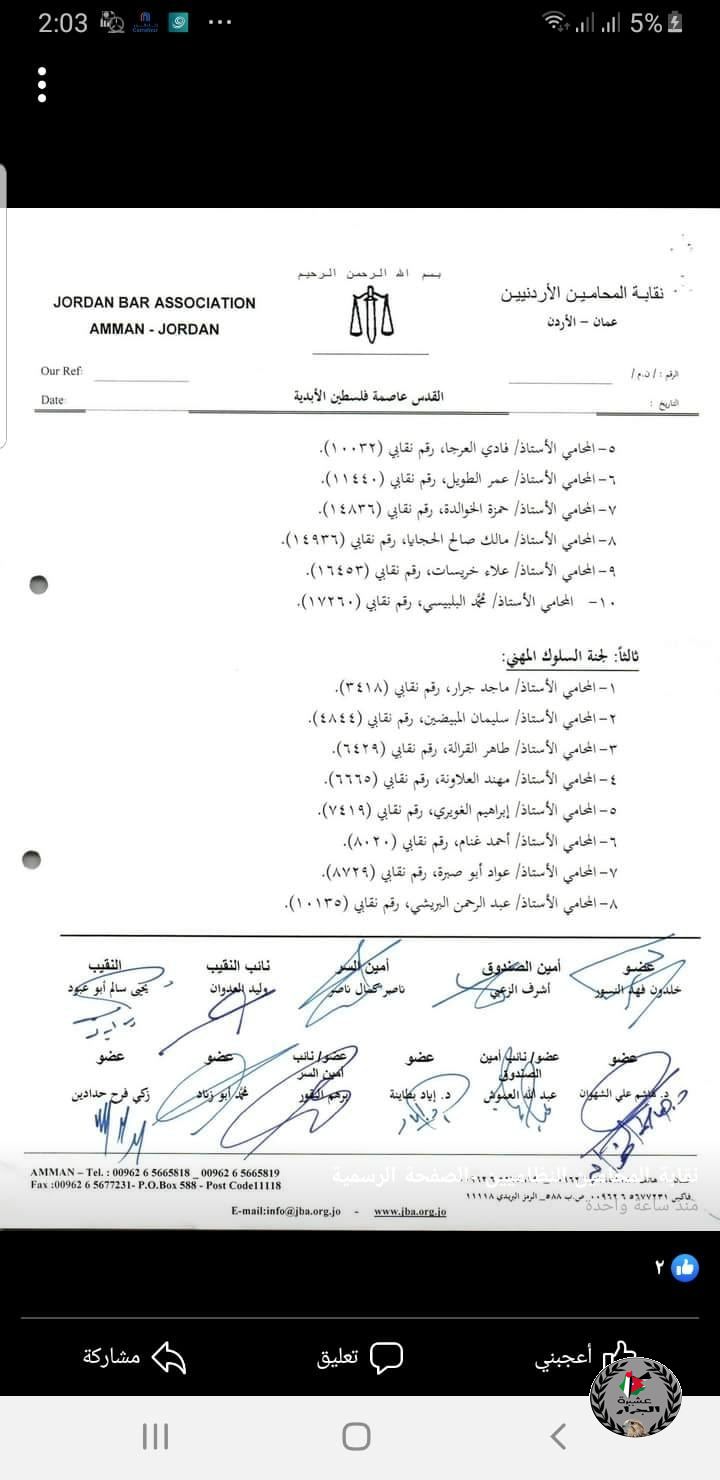 2:03
5%
بسم الله الرحمن الرحيم
JORDAN BAR ASSOCIATION
نقابة المحامين الأردنيين
AMMAN - JORDAN
عمان – الأردن
Our Ref:
الرقم : / ن.م /
Date:
القدس عاصمة فلسطين الأبدية
التاريخ :
٥- المحامي الأستاذ/ فادي العرجا، رقم نقابي (١٠٠٣٢).
٦- المحامي الأستاذ/ عمر الطويل، رقم نقابي (١١٤٤٠).
٧- المحامي الأستاذ/ حمزة الخوالدة، رقم نقابي (١٤٨٣٦).
٨- المحامي الأستاذ/ مالك صالح الحجايا، رقم نقابي (١٤٩٣٦).
٩- المحامي الأستاذ/ علاء خريسات، رقم نقابي (١٦٤٥٣).
١٠- المحامي الأستاذ/ محمد البلبيسي، رقم نقابي (١٧٢٦٠).
ثالثاً: لجنة السلوك المهني:
١- المحامي الأستاذ/ ماجد جرار، رقم نقابي (٣٤١٨).
٢- المحامي الأستاذ/ سليمان المبيضين، رقم نقابي (٤٨٤٤).
٣- المحامي الأستاذ/ طاهر القرالة، رقم نقابي (٦٤٢٩).
٤- المحامي الأستاذ/ مهند العلاونة، رقم نقابي (٦٦٦٥).
٥- المحامي الأستاذ/ إبراهيم الغويري، رقم نقابي (٧٤١٩).
٦- المحامي الأستاذ/ أحمد غنام، رقم نقابي (٨٠٢٠).
٧- المحامي الأستاذ/ عواد أبو صبرة، رقم نقابي (٨٧٢٩).
٨- المحامي الأستاذ/ عبد الرحمن البريشي، رقم نقابي (١٠١٣٥).
عضو أمين الصندوق أمين السر نائب النقيب النقيب
خلدون فهد النسور أشرف الزعبي ناصر كمال ناصر وليد العدوان يحيى سالم أبو عبود
عضو عضو/ نائب أمين الصندوق عضو عضو/ نائب أمين السر عضو عضو
د. هاشم علي الشهوان عبد الله العموش د. إياد بطاينة محمد أبو زناد زكي فرح حدادين
AMMAN – Tel. : 00962 6 5665818 _ 00962 6 5665819
Fax :00962 6 5677231- P.O.Box 588 - Post Code11118
نقابة المحامين النظاميين - الصفحة الرسمية
فاكس ٠٠٩٦٢ ٦ ٥٦٧٧٢٣١ ص.ب ٥٨٨ _ الرمز البريدي ١١١١٨
منذ ساعة واحدة
E-mail:info@jba.org.jo - www.jba.org.jo
٢
أعجبني تعليق مشاركة
عشيرة
الجرار